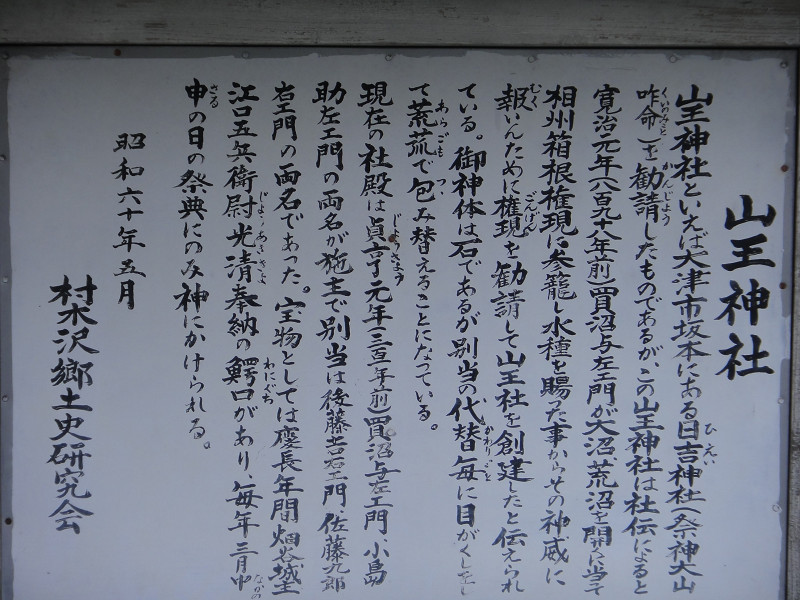 山王神社
山王神社といえば大津市坂本にある日吉神社(祭神大山
咋命)を勧請したものであるが、この山王神社は社伝によると
寛治元年(八百九十八年前)買沼与左エ門が大沼荒沼を開くに当て
相州箱根権現に参籠し水種を賜った事からその神威に
報いんために権現を勧請して山王社を創建したと伝えられ
ている。御神体は石であるが別当の代替毎に目がくしをし
て荒菰で包み替えることになっている。
現在の社殿は貞享元年(三百年前)買沼与左エ門、小島
助左エ門の両名が施主で別当は後藤吉右エ門、佐藤九郎
右エ門の両名であった。宝物としては慶長年間畑谷城主
江口五兵衛尉光清奉納の鰐口があり、毎年三月中
申の日の祭典にのみ神にかけられる。
昭和六十年五月
村木沢郷土史研究会